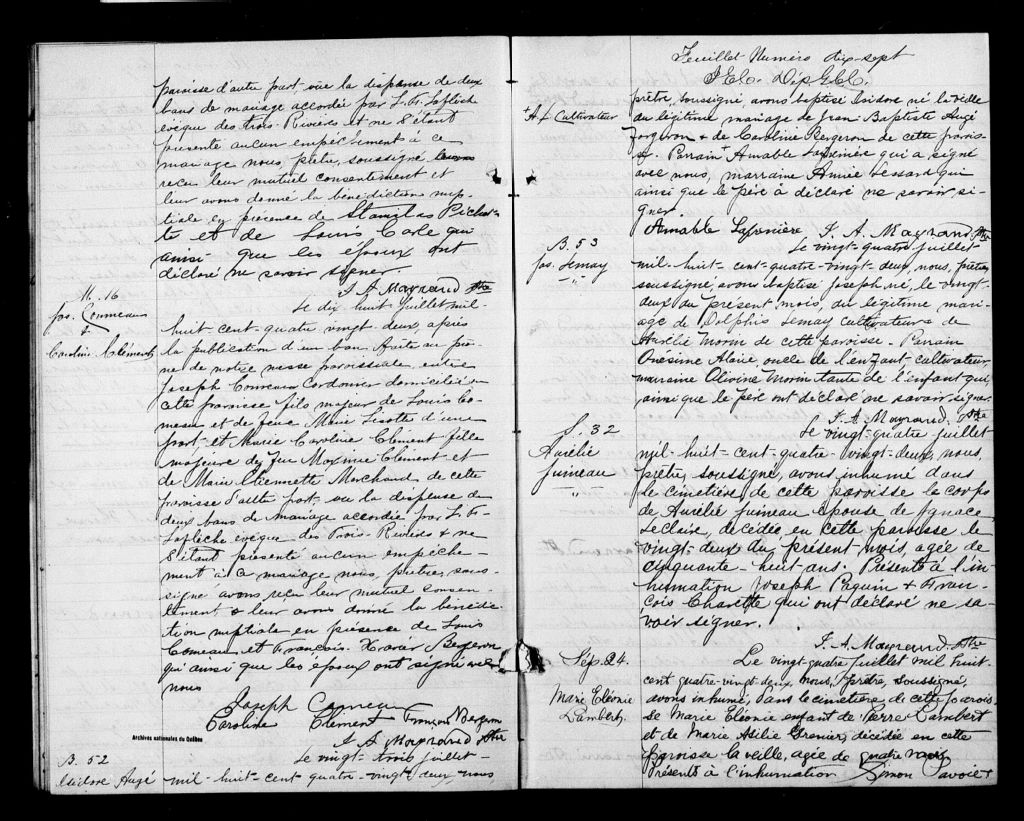 paroisse d'autre part, vue la dispense de deux
bans de mariage accordée par L. Fr. Laflèche
evêque des Trois-Rivières et ne s'étant
présenté aucun empêchement à ce
mariage nous, prêtre, soussigné avons
reçu leur mutuel consentement et
leur avons donné la bénédiction nup-
tiale en présence de Stanislas
et de Louis Carle qui
ainsi que les époux ont
déclaré ne savoir signer.
J. A. Mayrand Ptre
M. 16
Jos. Comeau
&
Caroline Clément
Le dix-huit juillet mil-
huit cent-quatre vingt-deux, après
la publication d'un ban faite au prô-
ne de notre messe paroissiale, entre
Joseph Comeau Cordonnier domicilié en
cette paroisse fils majeur de Louis Co-
meau et de feue Marie Lisotte d'une
part et Marie Caroline Clément fille
majeure de feu Maxime Clément et
de Marie Etiennette Marchand de cette
paroisse d'autre part, vu la dispense de
deux bans de mariage accordée par L. Fr.
Laflèche evêque des Trois-Rivières & ne
s'étant présenté aucun empêche-
ment à ce mariage nous, prêtre, sous-
signé avons reçu leur mutuel consen-
tement & leur avons donné la bénédic-
tion nuptiale en présence de Louis
Comeau et François Xavier Bergeron
qui ainsi que les époux ont signé avec
nous
Joseph Comeau
Caroline Clement François Bergeron
J. A. Mayrand Ptre
Archives nationales du Québec
B. 52
Isidore Augé
Le vingt-trois juillet-
mil-huit-cent quatre-vingt deux nous
Feuillet Numéro dix-sept
+ A. L Cultivateur
prêtre, soussigné avons baptisé Isidore né la veille
du légitime mariage de Jean Baptiste Augé
forgeron & de Caroline Bergeron de cette parois-
se. Parrain + Amable Laferrière qui a signé
avec nous, marraine Annie Lessard qui
ainsi que le père a déclaré ne savoir si-
gner.
Amable Laferrière J. A. Mayrand, Ptre
B. 53
Jos. Lemay
Le vingt-quatre juillet
mil-huit-cent-quatre-vingt-deux, nous, prêtre,
soussigné, avons baptisé Joseph né, le vingt-
deux du présent mois, du légitime mari-
age de Delphis Lemay cultivateur & de
Aurélie Morin de cette paroisse. Parrain
Onésime Alarie, oncle de l'enfant cultivateur,
marraine Olivine Morin tante de l'enfant qui,
ainsi que le père ont déclaré ne savoir signer.
J. A. Mayrand. Ptre
S. 32
Aurélie
Juineau
Le vingt-quatre juillet
mil-huit-cent-quatre-vingt-deux, nous,
prêtre, soussigné, avons inhumé dans
le cimetière de cette paroisse le corps
de Aurélie Juineau épouse de Ignace
Leclaire, décédée en cette paroisse le
vingt-deux du présent mois, agée de
cinquante-huit-ans. Présents à l'in-
humation Joseph Paquin & Fran-
çois Charette qui ont déclaré ne sa-
voir signer.
J. A. Mayrand, Ptre
Sép. 24.
Marie Eléonie
Lambert
Le vingt-quatre juillet mil huit
cent quatre-vingt-deux, nous, prêtre, soussigné,
avons inhumé, dans le cimetière de cette parois-
se Marie Eléonie enfant de Pierre Lambert
et de Marie Asilie Grenier, décédée en cette
paroisse la veille, agée de quatre mois
Présents à l'inhumation Simon Savoie &